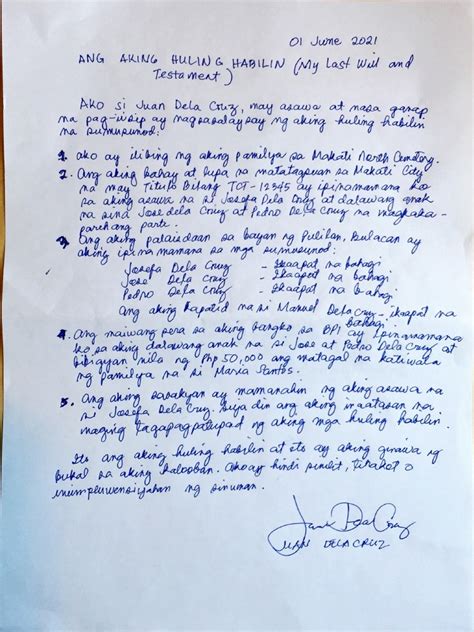 01 June 2021
ANG AKING HULING HABILIN (My Last Will and
Testament)
AKO si Juan Dela Cruz, may asawa at nasa ganap
na pag-iisip ay nagsasalaysay ng aking huling habilin
na sumusunod:
1. ako ay ilibing ng aking pamilya sa Makati North Cemetery.
2. Ang aking bahay at lupa na matatagpuan sa Makati City
na may Titulo Bilang TCT-12345 ay ipinamamana ko
sa aking asawa na si Josefa Dela Cruz at dalawang anak
na sina Jose dela Cruz at Pedro Dela Cruz na magkaka-
parehang parte.
3. Ang aking palaisdaan sa bayan ng Pulilan, Bulacan ay
aking ipinamamana sa mga sumusunod:
Josefa Dela Cruz - Ikaapat na bahagi
Jose Dela Cruz - Ikaapat na bahagi
Pedro Dela Cruz - Ikaapat na bahagi
Ang aking kapatid na si Manuel Dela Cruz - ikaapat na
bahagi.
4. Ang naiwang pera sa aking bangko sa BPI ay ipinamamana
ko sa aking dalawang anak na si Jose at Pedro Dela Cruz at
bibigyan nila ng Php 50,000 ang matagal na katiwala
ng pamilya na si Maria Santos.
5. Ang aking sasakyan ay mamanahin ng aking asawa na
si Josefa Dela Cruz. Siya din ang aking inaatasan na
maging tagapagpatupad ng aking mga huling habilin.
Ito ang aking huling habilin at ito ay aking ginawa ng
bukal sa aking kalooban. Ako ay hindi pinilit, tinakot o
inumpluwensiyahan ng sinuman.
Juan Dela Cruz
JUAN DELA CRUZ